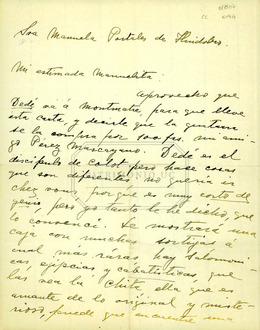 Sra Manuela Portales de Huidobro.
Mi estimada Manuelita:
Aprovecho que
Dedé va á Montmatre para que lleve
esta carta, y decirle que la guitarra
se la compra por 100 frs. un ami-
go Perez Mascayano. Dedé es el
discipulo de Calot pero hace cosas
que son diferentes no queria ir
chez vous porque es muy corto de
genio pero yo tanto le he dicho, que
lo convencí. Le mostrará una
caja con muchas sortijas á
cual mas raras, hay Salomoni-
cas egipcias y cabalisticas, que
las vea la Chita, ella que es
amante de lo original y miste-
rioso, puede que encuentre una